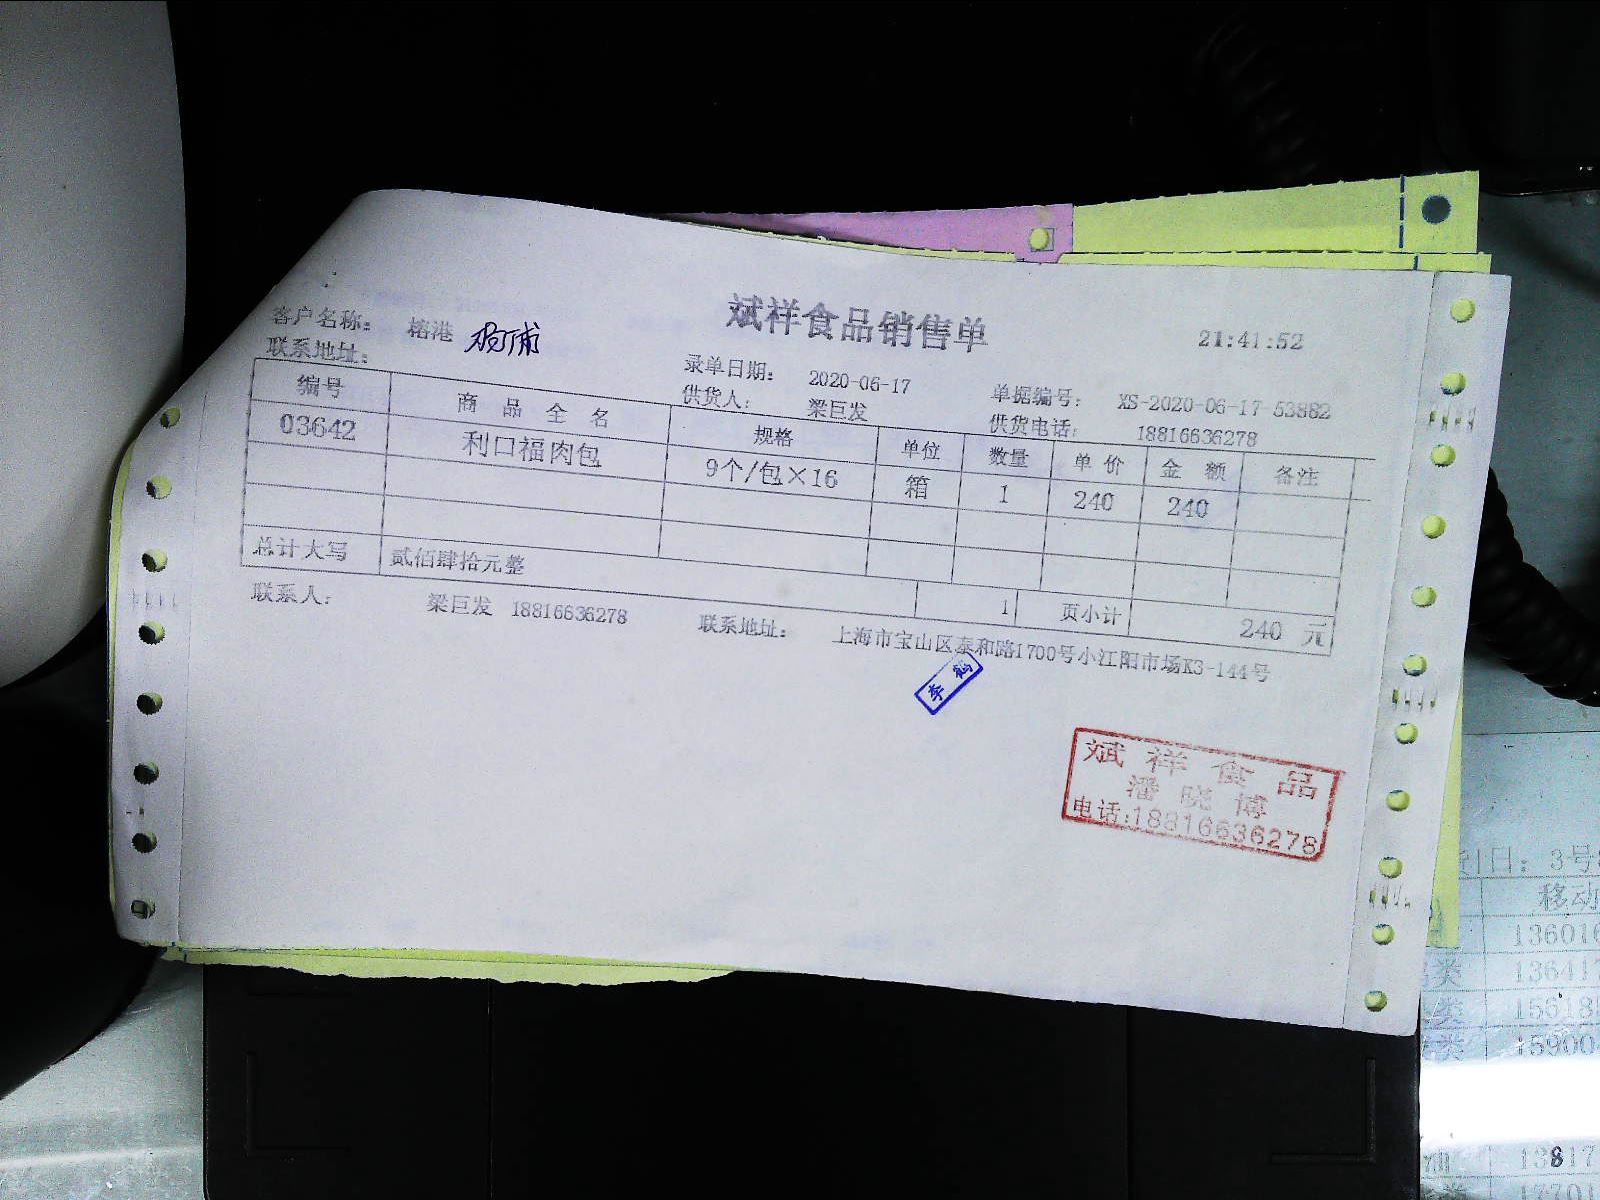 斌祥食品销售单
21:41:52
客户名称: 榕港 杨浦
录单日期: 2020-06-17 单据编号: XS-2020-06-17-53882
联系地址: 供货人: 梁巨发 供货电话: 18816636278
编号 商品全名 规格 单位 数量 单价 金额 备注
03642 利口福肉包 9个/包×16 箱 1 240 240
总计大写 贰佰肆拾元整 1 页小计 240 元
联系人: 梁巨发 18816636278 联系地址: 上海市宝山区泰和路1700号小江阳市场K3-144号
李鹤
斌祥食品
潘晓博
电话:18816636278
口: 3号
移动
13601
类 13641
类 15618
类 15900
13817